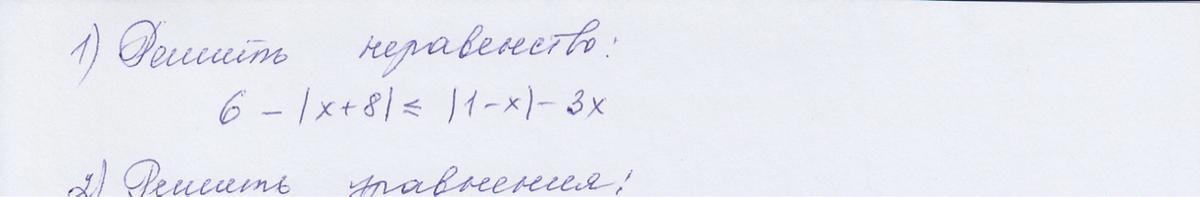 1) Решить неравенство:
6 - |x+8| ≤ |1-x| - 3x
2) Решить уравнения: